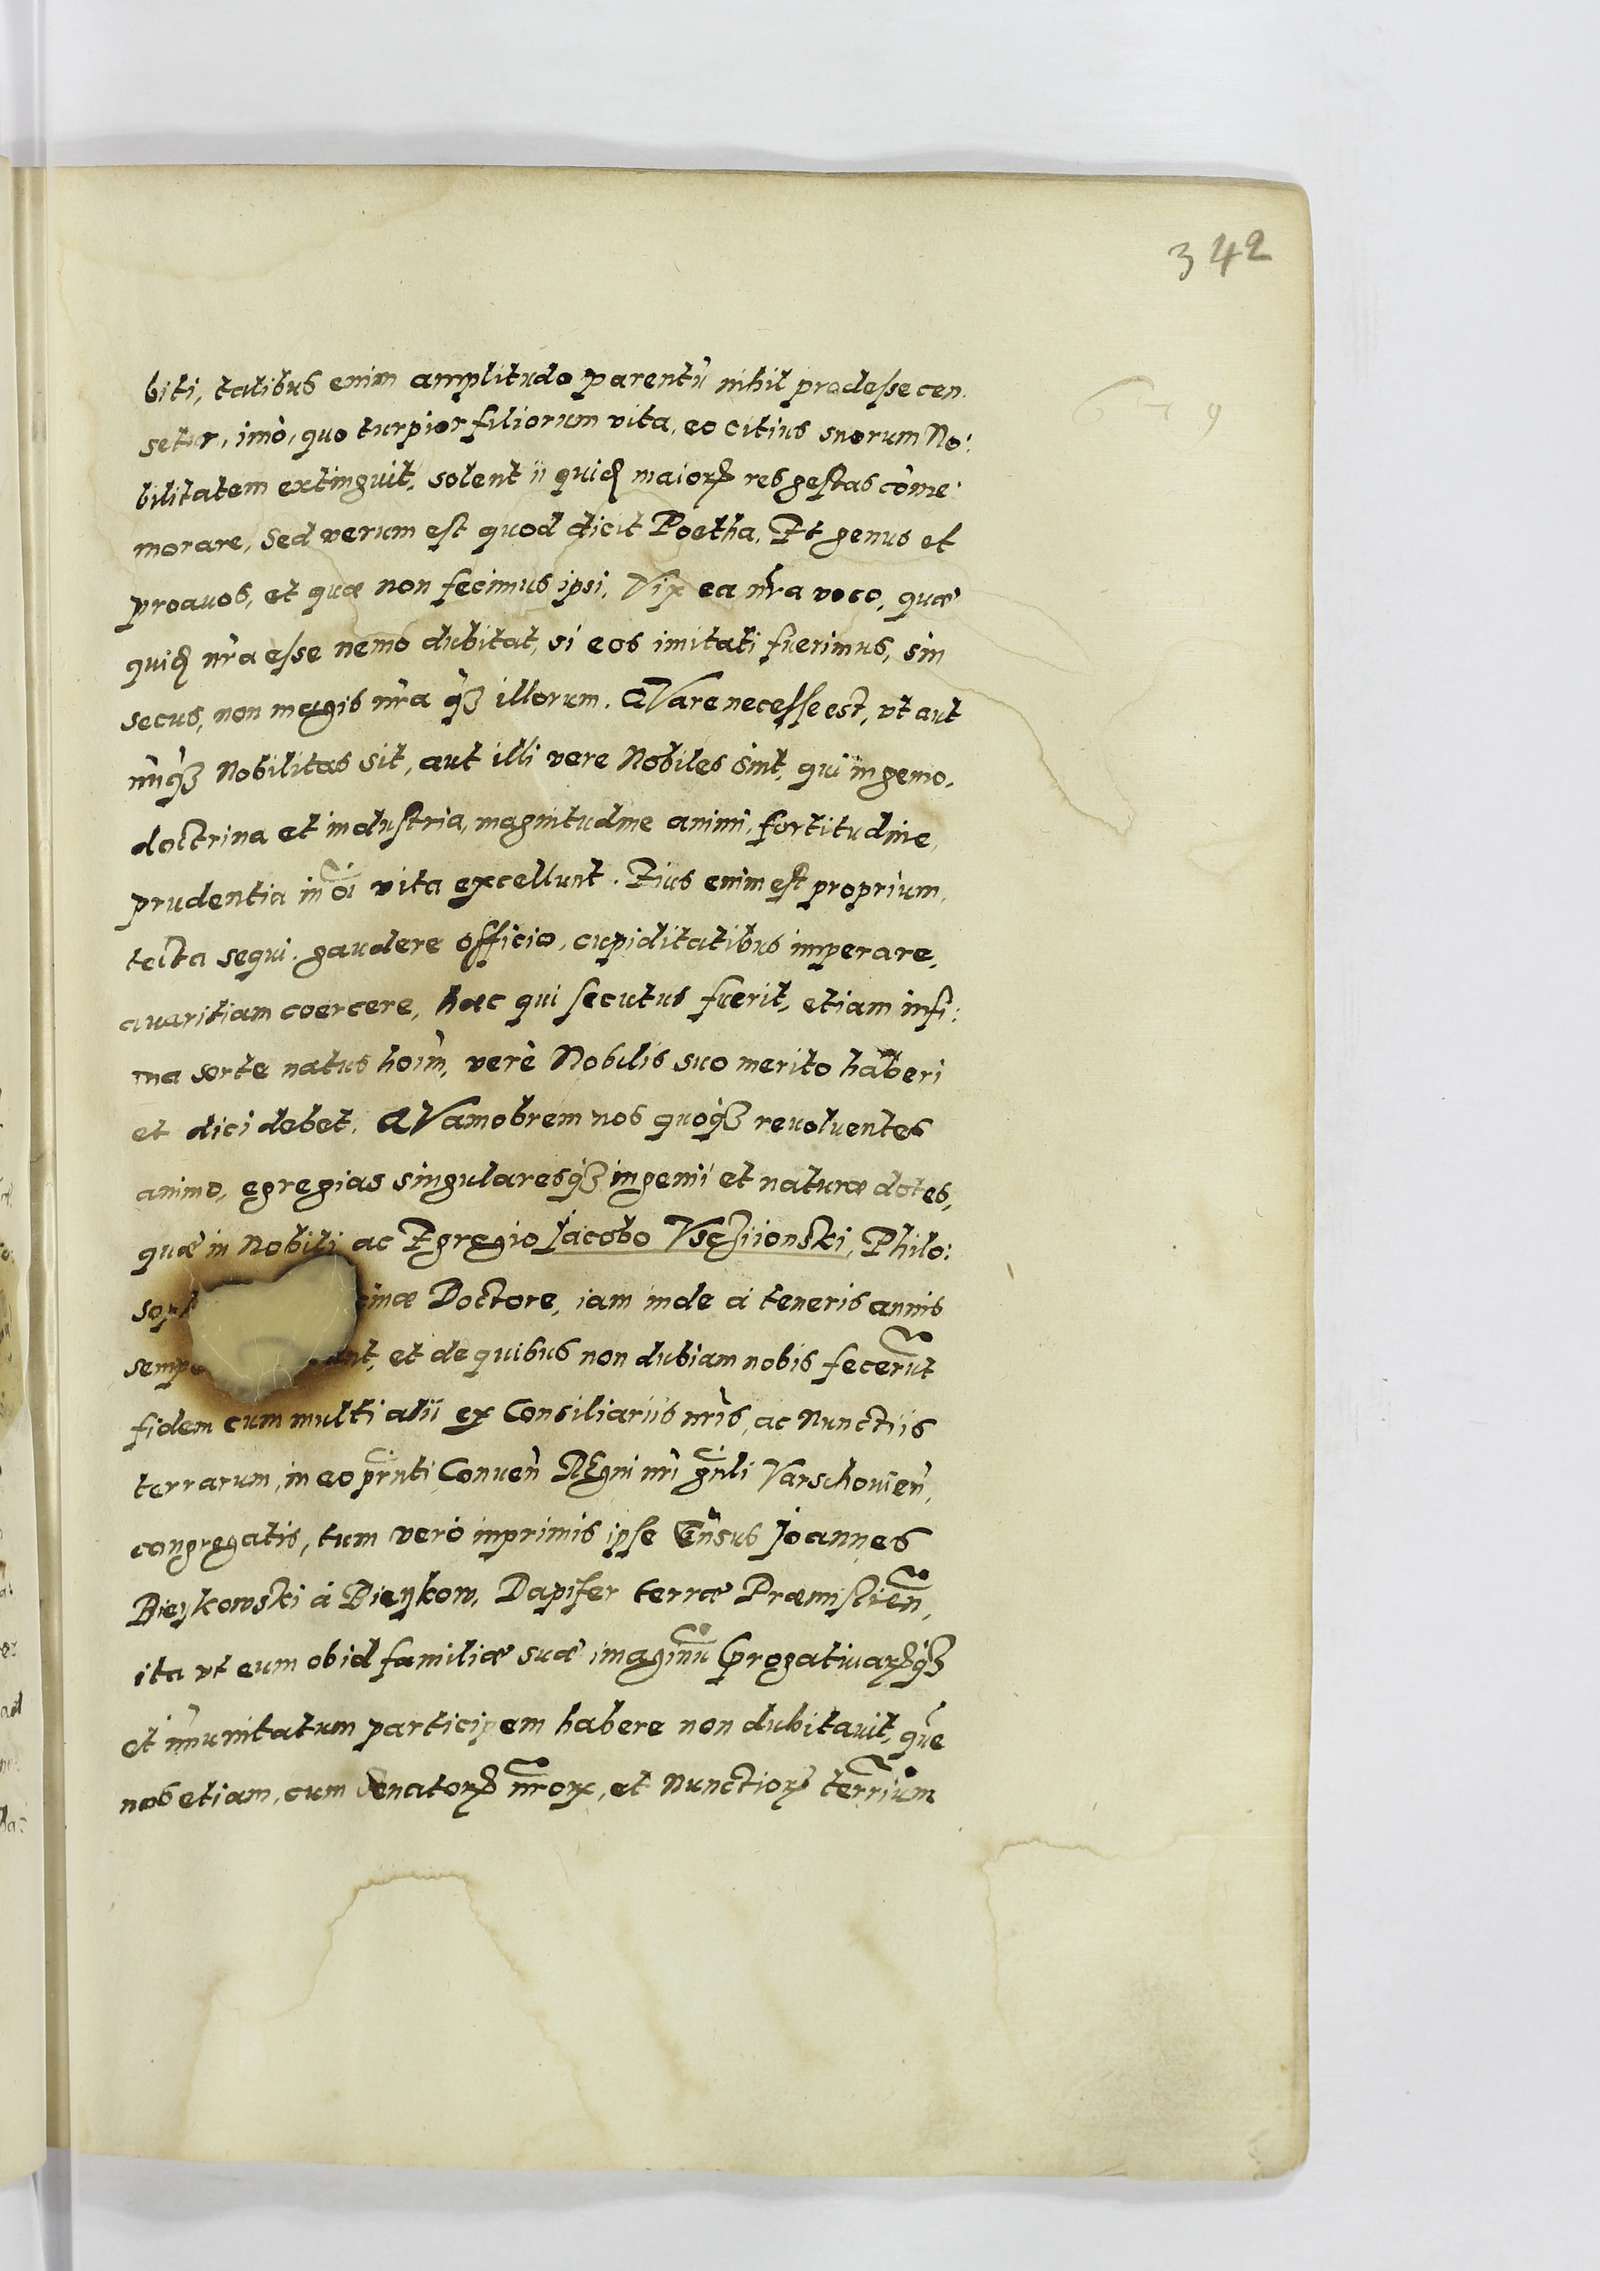 342
biti, talibus enim amplitudo parentū nihil prodesse cen
setur, imò, quo turpior filiorum vita, eo citius suorum No:
bilitatem extinguit, solent ii quid maiorꝝ res gestas com̄e:
morare, Sed verum est quod dicit Poetha, Et genus et
proauos, et quæ non fecimus ipsi, Vix ea nr̄a voco, quæ
quid nr̄a esse nemo dubitat, si eos imitati fuerimus, sin
secus, non magis nr̄a qꝫ illorum. QVare necesse est, vt aut
nūqꝫ Nobilitas sit, aut illi vere Nobiles sint, qui ingenio,
doctrina et industria, magnitudine animi, fortitudine,
prudentia in oī vita excellunt. Eius enim est proprium,
tecta sequi, gaudere officio, cupiditatibus imperare,
auaritiam coercere, hæc qui secutus fuerit, etiam infi:
ma sorte natus hoīm, verè Nobilis suo merito haberi
et dici debet. QVamobrem nos quoqꝫ reuoluentes
animo, egregias singularesqꝫ ingenii et naturæ dotes,
quæ in Nobili ac Egregio Jacobo Vschiionski, Philo:
Doctore, iam inde à teneris annis
et de quibus non dubiam nobis fecerūt
fidem cum multi alii ex Consiliariis nr̄is, ac Nunctiis
terrarum, in eo prn̄ti Conuen̄ REgni nr̄i gn̄li Varschouien̄,
congregatis, tum verò inprimis ipse Gn̄sus Joannes
Bieykowski à Bieykow, Dapifer terræ Præmislien̄,
ita vt eum ob id familiæ suæ imaginū prog̃atiuarꝝqꝫ
et im̄unitatum participem habere non dubitauit, quē
nos etiam, cum Senatorꝝ nr̄orꝝ, et Nunctiorꝝ terr̄ium